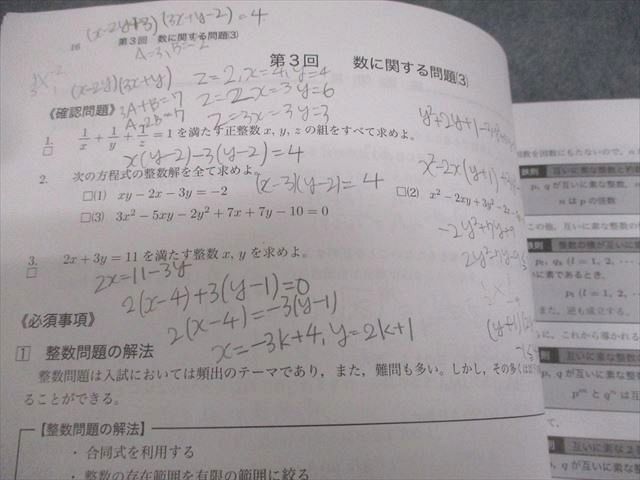 (x-2y+3)(3x+y-2)=4
16 第3回 数に関する問題(3)
A=3, B=-2
第3回 数に関する問題(3)
(x-2y)(3x+y)
z=2, x=4, y=4
《確認問題》
3A+B=7
A-2B=7
z=2 x=3 y=6
z=3 x=3 y=3
1. 1/x + 1/y + 1/z = 1 を満たす正整数 x, y, z の組をすべて求めよ。
x(y-2)-3(y-2)=4
2. 次の方程式の整数解を全て求めよ。
(x-3)(y-2)=4
□(1) xy − 2x − 3y = −2
□(2) x² − 2xy + 3y² − 2x
□(3) 3x² − 5xy − 2y² + 7x + 7y − 10 = 0
3. 2x + 3y = 11 を満たす整数 x, y を求めよ。
2x=11-3y
2(x-4)+3(y-1)=0
2(x-4)=-3(y-1)
x=-3k+4, y=2k+1
《必須事項》
1 整数問題の解法
整数問題は入試においては頻出のテーマであり，また，難問も多い。しかし，その多くは
ることができる。
【整数問題の解法】
・合同式を利用する
・整数の存在範囲を有限の範囲に絞る
y²+2y+1
x²-2x(y+1)
-2y²+7y+9
を因数にもたないので，
鉄則 互いに素な整数と約
p, q が互いに素な整数，
n は p の倍数
この他，互いに素な整数の
鉄則 整数の積が互いに
に素であるとき，
また，逆も成立する。
に，これから導かれる
互いに素な整
p, q が互いに素な整数
互いに素な2